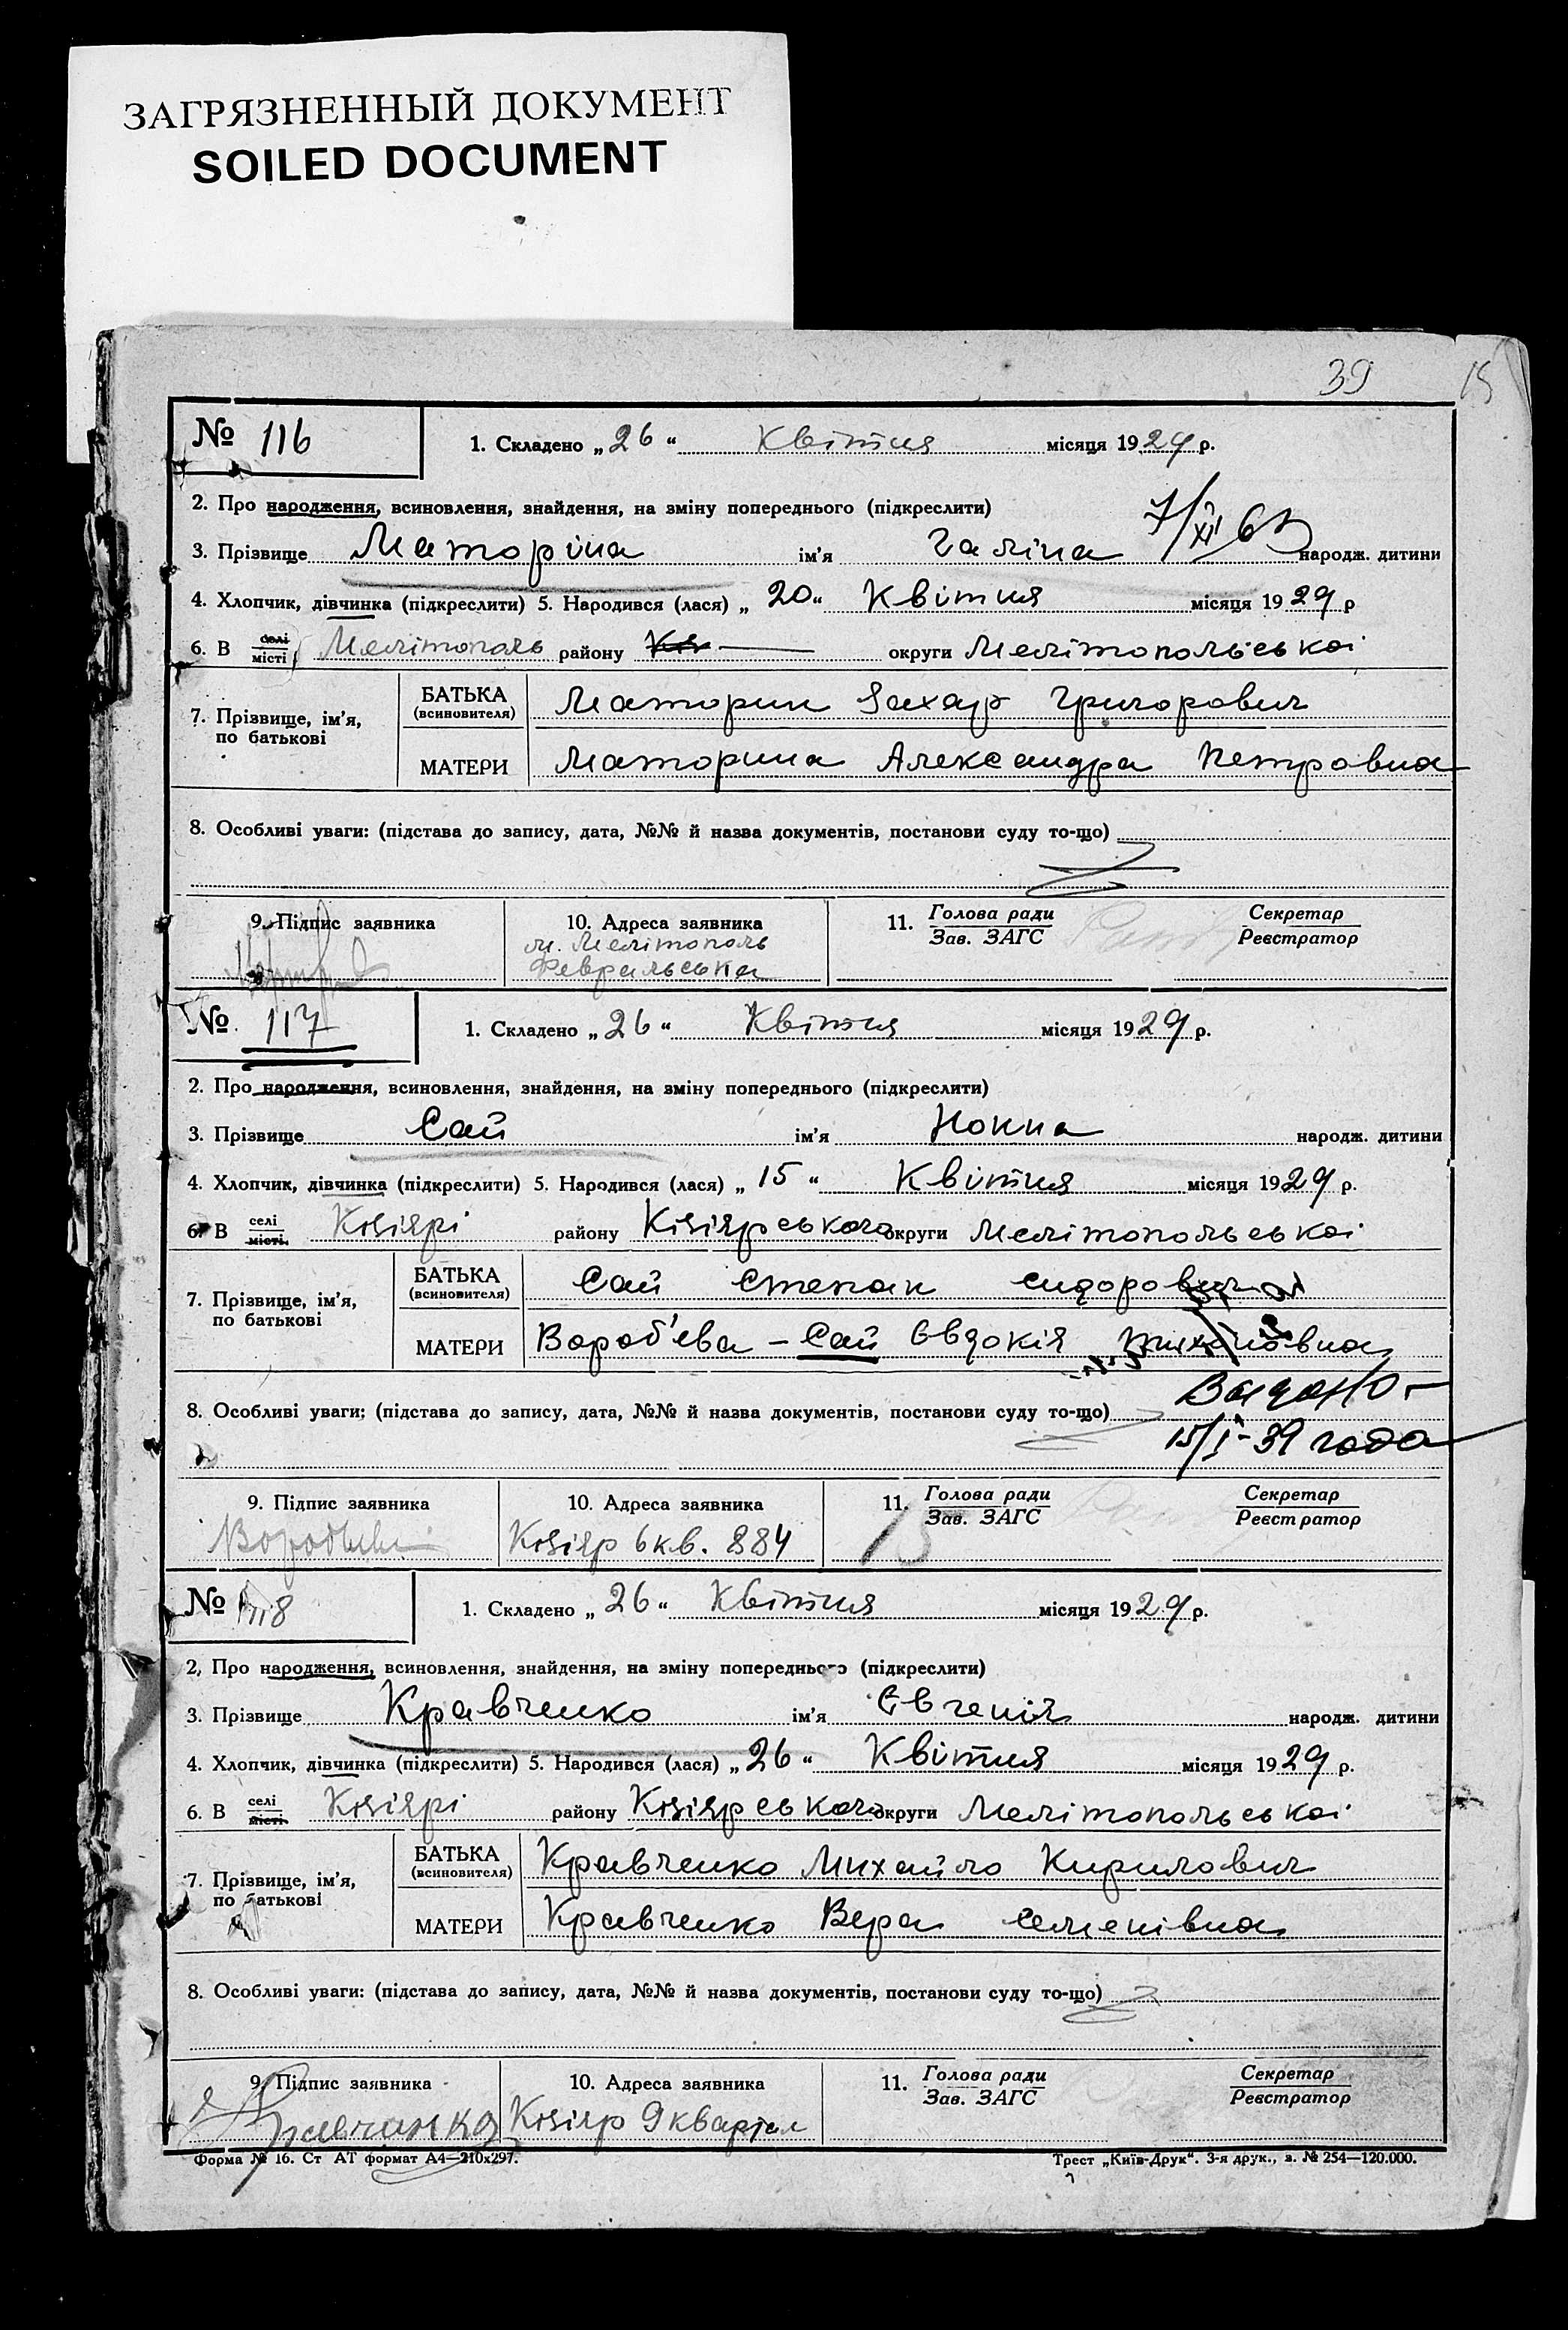 ЗАГРЯЗНЕННЫЙ ДОКУМЕНТ
SOILED DOCUMENT
39
15
№ 116
1. Складено „26“ Квітня місяця 1929 р.
2. Про народження, всиновлення, знайдення, на зміну попереднього (підкреслити)
7/XII 63
3. Прізвище Маторіна ім'я Галіна народж. дитини
4. Хлопчик, дівчинка (підкреслити) 5. Народився (лася) „20“ Квітня місяця 1929 р
6. В селі/місті Мелітополь району округи Мелітопольськоі
7. Прізвище, ім'я, по батькові
БАТЬКА (всиновителя) Маторин Захар Григорович
МАТЕРИ Маторина Александра Петровна
8. Особливі уваги: (підстава до запису, дата, №№ й назва документів, постанови суду то-що)
9. Підпис заявника
10. Адреса заявника
м. Мелітополь
Февральська
11. Голова ради / Зав. ЗАГС
Секретар / Реєстратор
№ 117
1. Складено „26“ Квітня місяця 1929 р.
2. Про народження, всиновлення, знайдення, на зміну попереднього (підкреслити)
3. Прізвище Сай ім'я Нонна народж. дитини
4. Хлопчик, дівчинка (підкреслити) 5. Народився (лася) „15“ Квітня місяця 1929 р.
6. В селі/місті Кізіярі району Кізіярського округи Мелітопольськоі
7. Прізвище, ім'я, по батькові
БАТЬКА (всиновителя) Сай Степан Сидорович
МАТЕРИ Вороб'ева – Сай Євдокія
8. Особливі уваги; (підстава до запису, дата, №№ й назва документів, постанови суду то-що)
Видано
15/I-39 года
9. Підпис заявника
10. Адреса заявника
Кізіяр 6 кв. 884
11. Голова ради / Зав. ЗАГС
Секретар / Реєстратор
№ 118
1. Складено „26“ Квітня місяця 1929 р.
2. Про народження, всиновлення, знайдення, на зміну попереднього (підкреслити)
3. Прізвище Кравченко ім'я Євгенія народж. дитини
4. Хлопчик, дівчинка (підкреслити) 5. Народився (лася) „26“ Квітня місяця 1929 р.
6. В селі/місті Кізіярі району Кізіярського округи Мелітопольськоі
7. Прізвище, ім'я, по батькові
БАТЬКА (всиновителя) Кравченко Михайло Кирилович
МАТЕРИ Кравченко Вера Семенівна
8. Особливі уваги: (підстава до запису, дата, №№ й назва документів, постанови суду то-що)
9. Підпис заявника
10. Адреса заявника
Кізіяр 9 квартал
11. Голова ради / Зав. ЗАГС
Секретар / Реєстратор
Форма № 16. Ст АТ формат А4—210х297.
Трест „Київ-Друк“. 3-я друк., з. № 254—120.000.